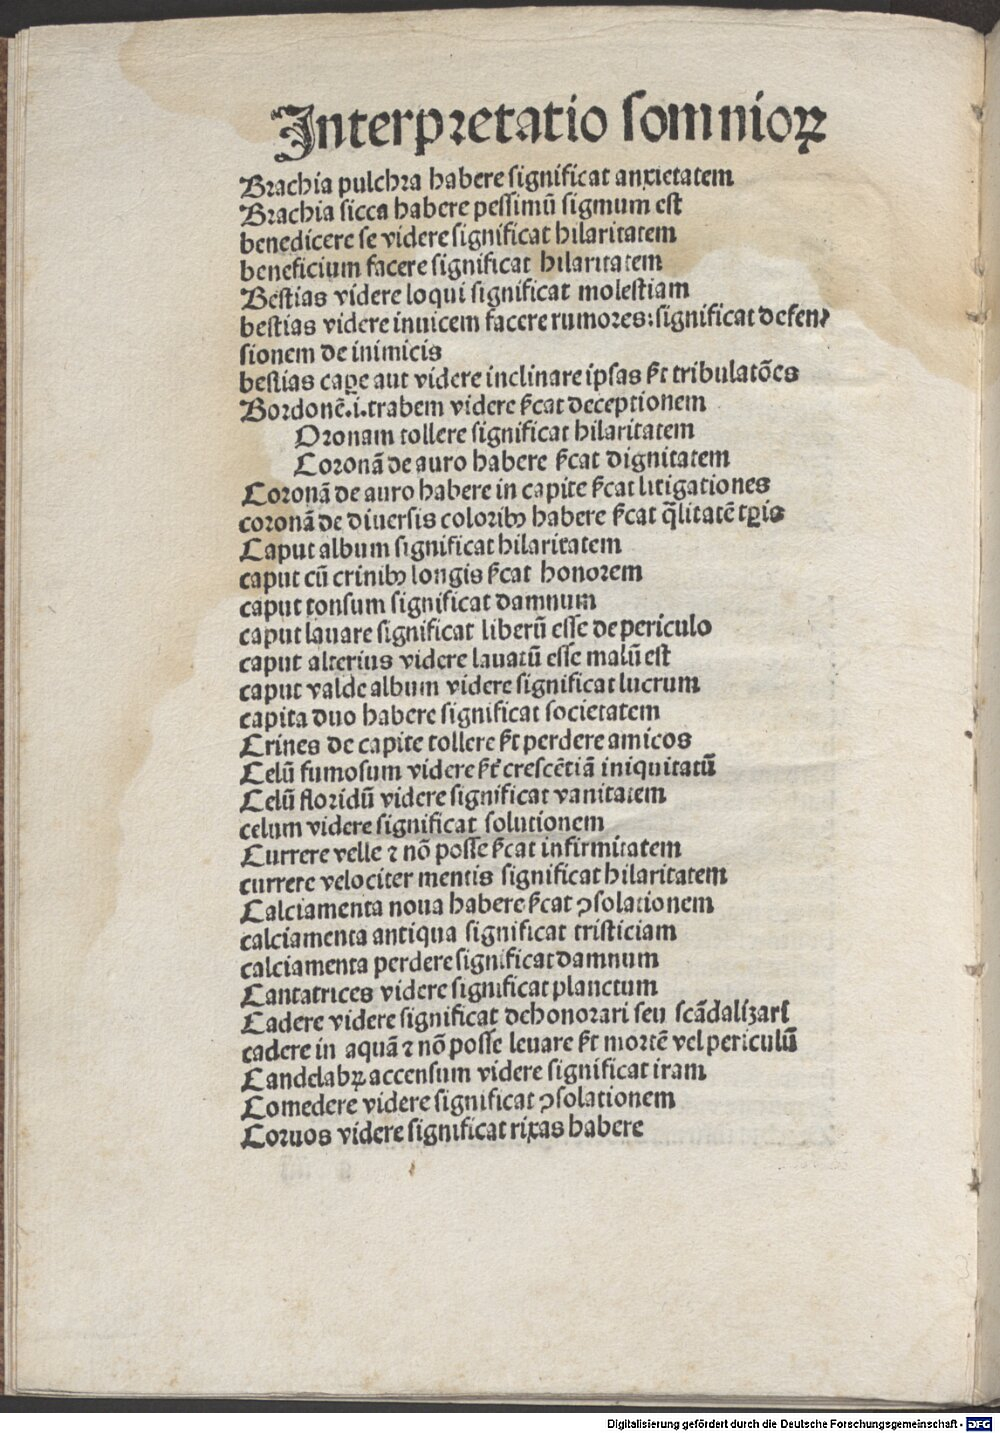 Interpretatio somnioꝝ
Brachia pulchra habere significat anxietatem
Brachia sicca habere pessimū sigmum est
benedicere se videre significat hilaritatem
beneficium facere significat hilaritatem
Bestias videre loqui significat molestiam
bestias videre inuicem facere rumores: significat defen⸗
sionem de inimicis
bestias caꝑe aut videre inclinare ipsas st tribulatōes
Bordonē.i.trabem videre scat deceptionem
Oronam tollere significat hilaritatem
Coronā de auro habere scat dignitatem
Coronā de auro habere in capite scat litigationes
coronā de diuersis coloribꝫ habere scat q̄litatē tꝑis
Caput album significat hilaritatem
caput cū crinibꝫ longis scat honorem
caput tonsum significat damnum
caput lauare significat liberū esse de periculo
caput alterius videre lauatū esse malū est
caput valde album videre significat lucrum
capita duo habere significat societatem
Crines de capite tollere st perdere amicos
Celū fumosum videre st crescētiā iniquitatū
Celū floridū videre significat vanitatem
celum videre significat solutionem
Currere velle ⁊ nō posse scat infirmitatem
currere velociter mentis significat hilaritatem
Calciamenta noua habere scat ꝯsolationem
calciamenta antiqua significat tristiciam
calciamenta perdere significat damnum
Cantatrices videre significat planctum
Cadere videre significat dehonorari seu scādalizari
cadere in aquā ⁊ nō posse leuare st mortē vel periculū
Candelabꝝ accensum videre significat iram
Comedere videre significat ꝯsolationem
Coruos videre significat rixas habere
Digitalisierung gefördert durch die Deutsche Forschungsgemeinschaft - DFG